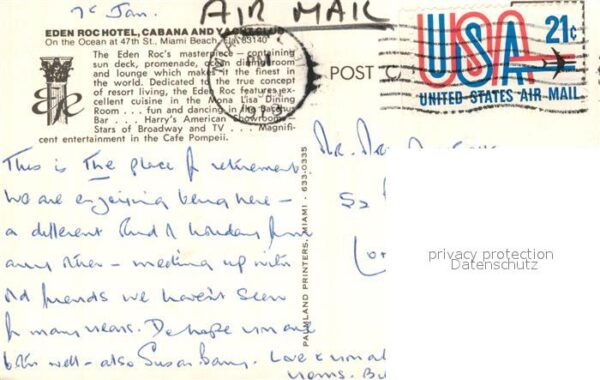 7th Jan.
AIR MAIL
EDEN ROC HOTEL, CABANA AND YACHT CLUB
On the Ocean at 47th St., Miami Beach, Fla. 33140
The Eden Roc's masterpiece — containing
sun deck, promenade, ocean dining room
and lounge which makes it the finest in the
world. Dedicated to the true concept
of resort living, the Eden Roc features ex-
cellent cuisine in the Mona Lisa Dining
Room . . . fun and dancing in the
Bar . . . Harry's American Showroom
Stars of Broadway and TV . . . Magnifi-
cent entertainment in the Cafe Pompeii.
POST
USA 21c
UNITED STATES AIR MAIL
PALMLAND PRINTERS, MIAMI - 633-0335
This is The place for retirement
We are enjoying being here -
a different kind of holiday from
any other - meeting up with
old friends we haven't seen
for many years. Do hope you are
both well - also Susan Barry. Love to you all
Yours.
52
privacy protection
Datenschutz